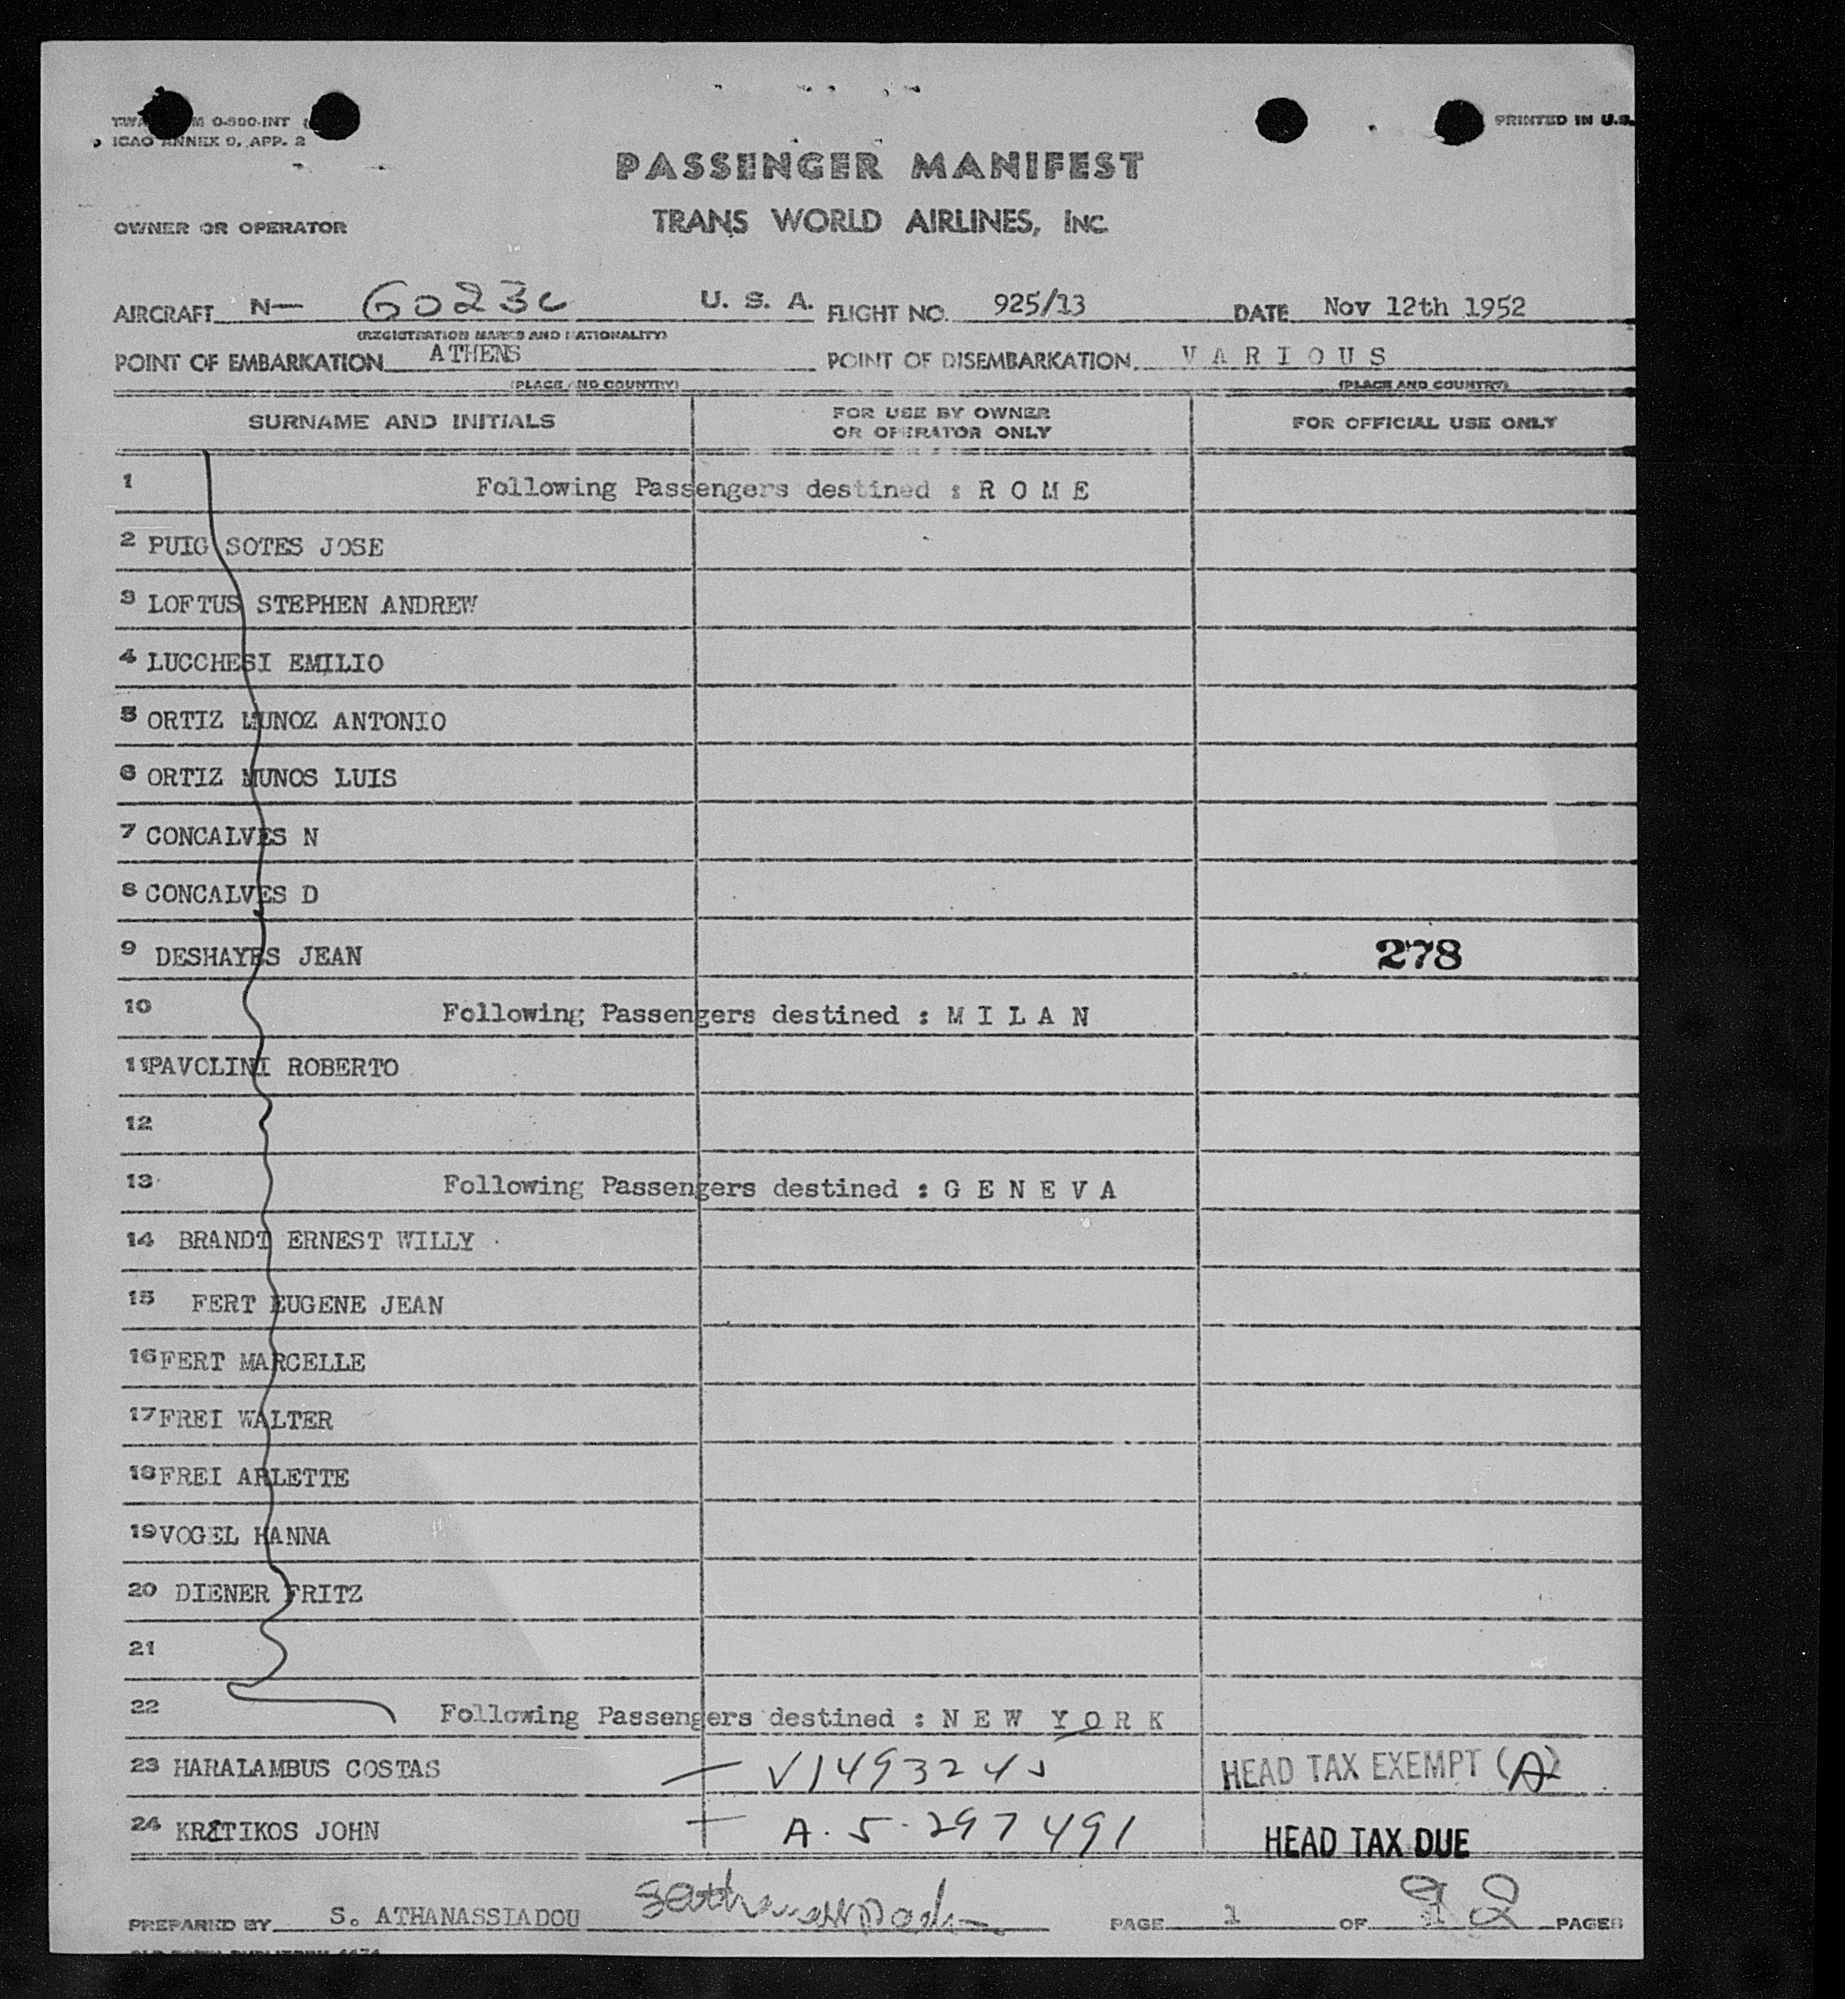 ICAO ANNEX 9, APP. 2
PRINTED IN U.S.
PASSENGER MANIFEST
OWNER OR OPERATOR
TRANS WORLD AIRLINES, INC.
AIRCRAFT N— 6023C U. S. A. FLIGHT NO. 925/13 DATE Nov 12th 1952
(REGISTRATION MARKS AND NATIONALITY)
POINT OF EMBARKATION ATHENS POINT OF DISEMBARKATION V A R I O U S
(PLACE AND COUNTRY) (PLACE AND COUNTRY)
SURNAME AND INITIALS FOR USE BY OWNER OR OPERATOR ONLY FOR OFFICIAL USE ONLY
1 Following Passengers destined : R O M E
2 PUIG SOTES JOSE
3 LOFTUS STEPHEN ANDREW
4 LUCCHESI EMILIO
5 ORTIZ MUNOZ ANTONIO
6 ORTIZ MUNOS LUIS
7 CONCALVES N
8 CONCALVES D
9 DESHAYES JEAN 278
10 Following Passengers destined : M I L A N
11 PAVOLINI ROBERTO
12
13 Following Passengers destined : G E N E V A
14 BRANDT ERNEST WILLY
15 FERT EUGENE JEAN
16 FERT MARCELLE
17 FREI WALTER
18 FREI ARLETTE
19 VOGEL HANNA
20 DIENER FRITZ
21
22 Following Passengers destined : N E W Y O R K
23 HARALAMBUS COSTAS — HEAD TAX EXEMPT (A)
24 KRITIKOS JOHN — A. 5. 297 491 HEAD TAX DUE
PREPARED BY S. ATHANASSIADOU PAGE 1 OF 2 PAGES